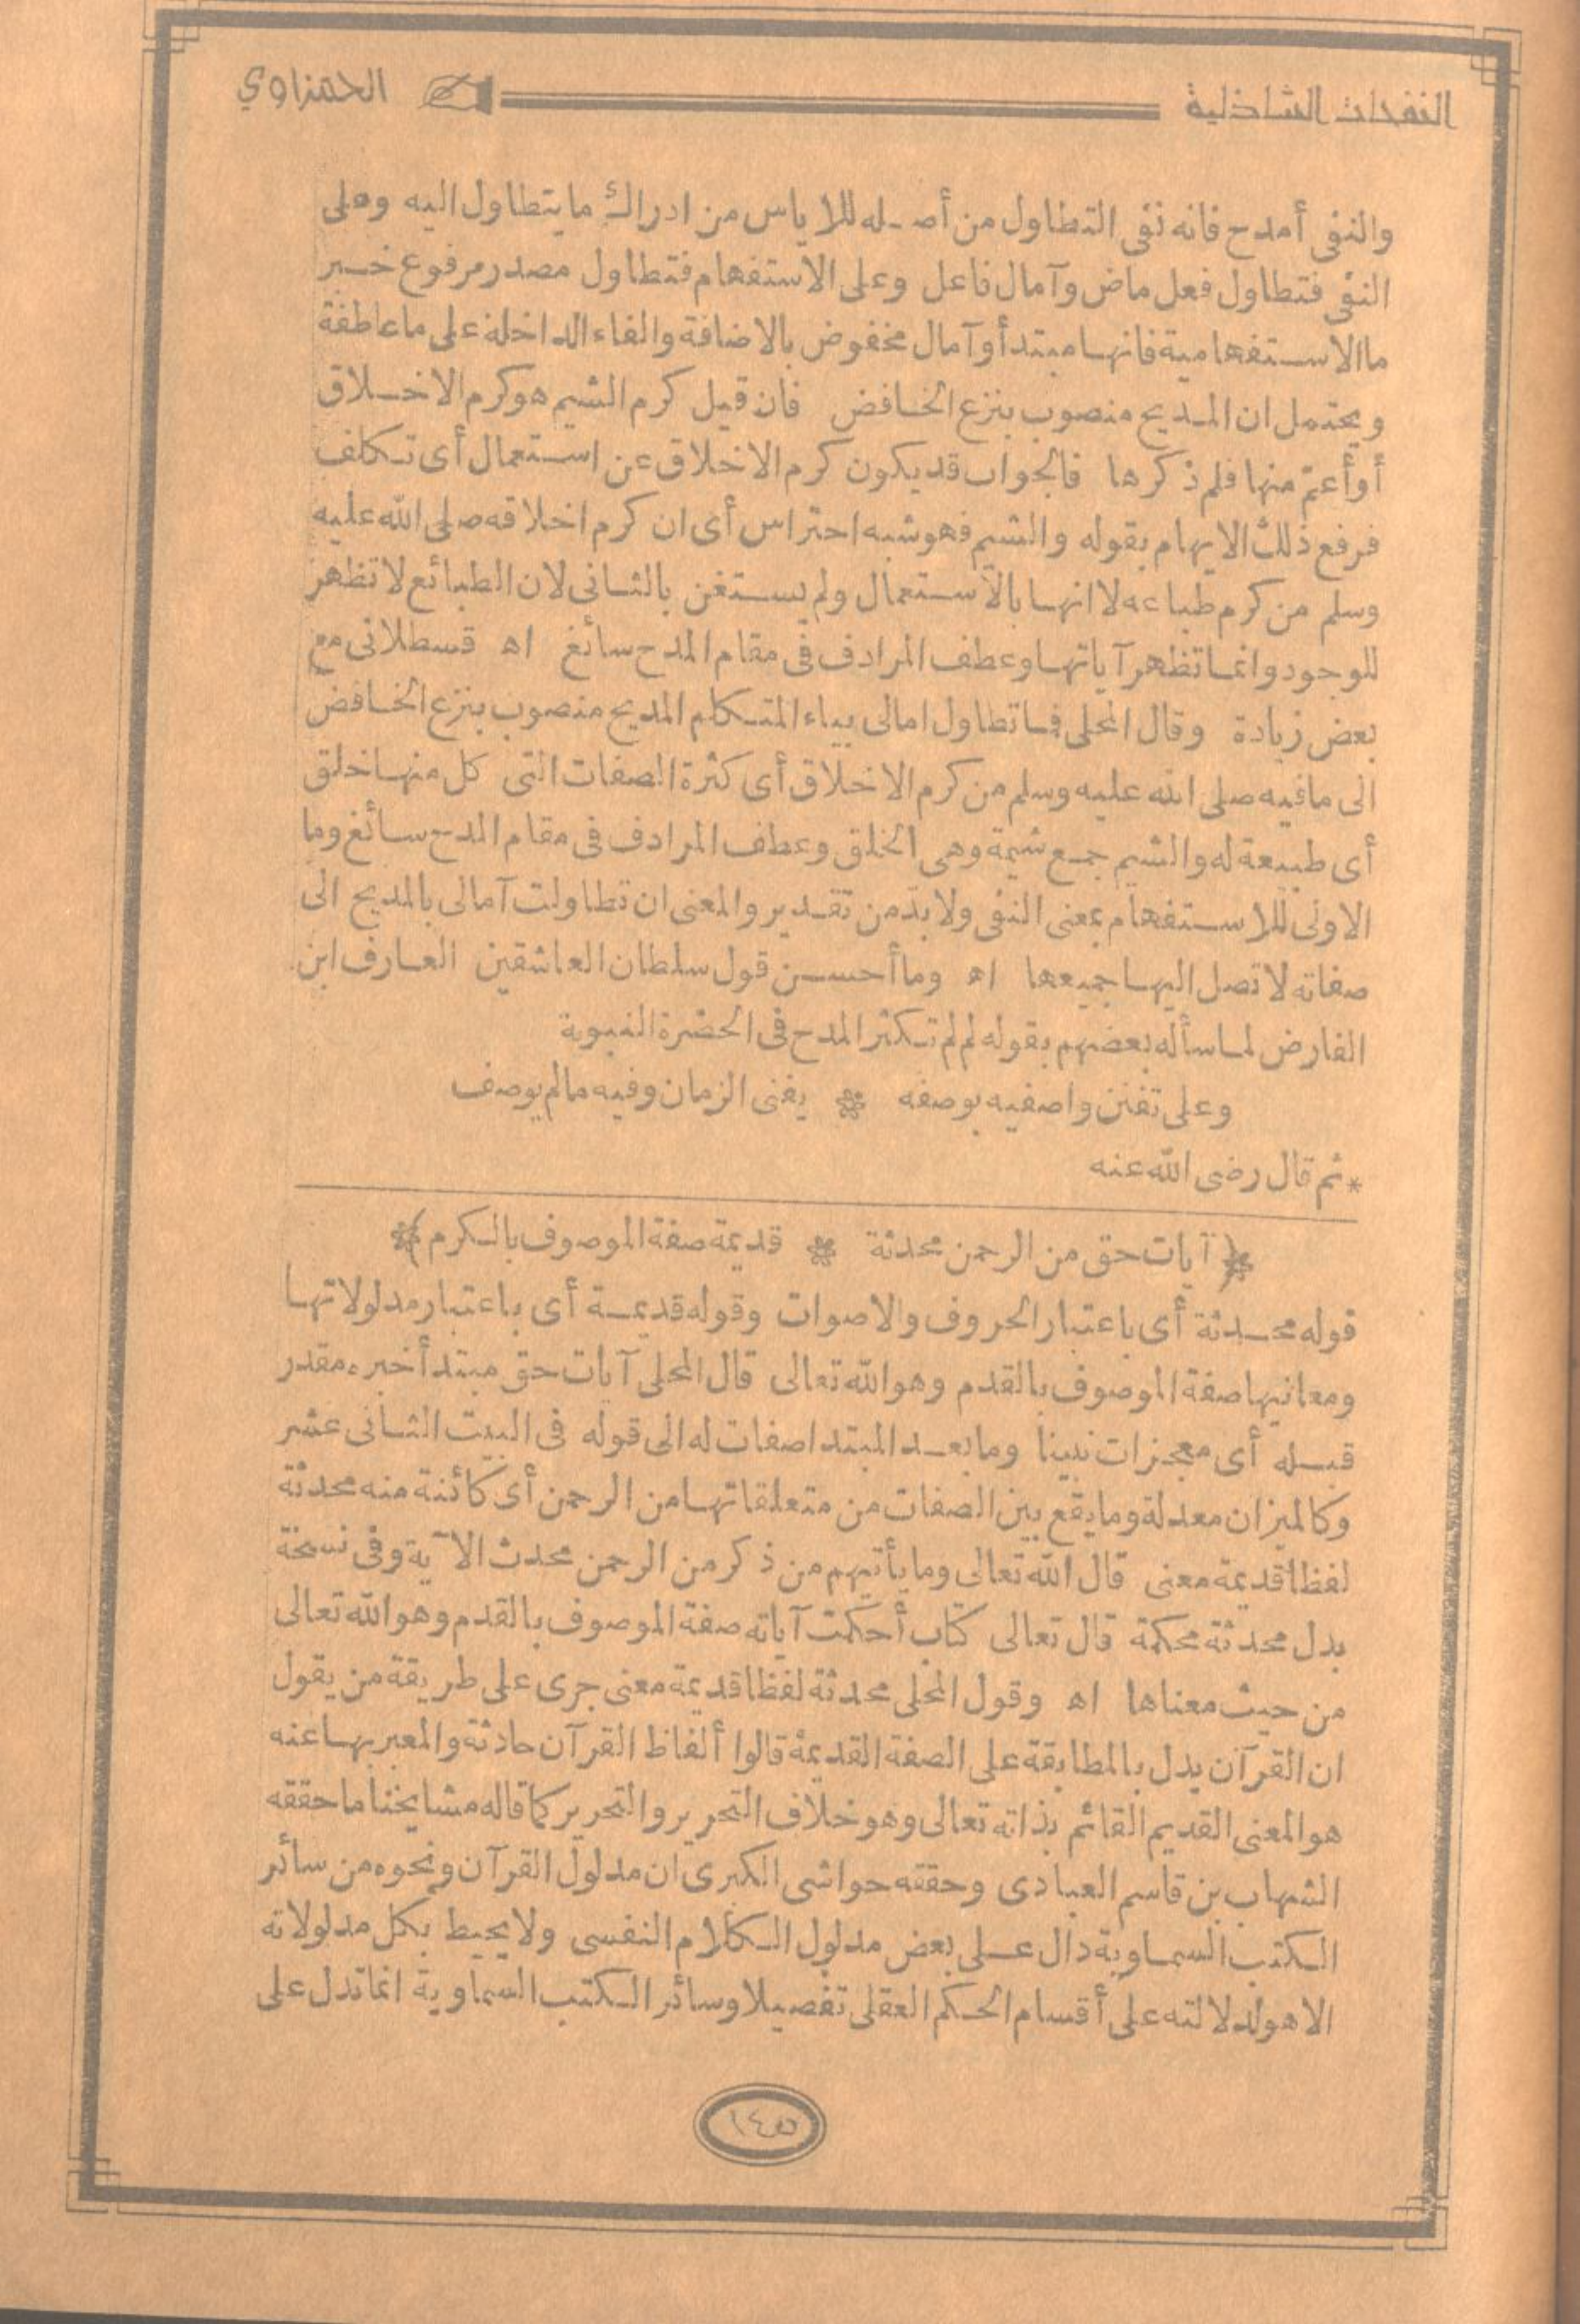 النفحات الشاذلية
الحمزاوي
والنفى أمدح فانه نفى التطاول من أصله للاياس من ادراك ما يتطاول اليه وعلى
النفى فتطاول فعل ماض وآمال فاعل وعلى الاستفهام فتطاول مصدر مرفوع خبر
ما الاستفهامية فانها مبتدأ وآمال مخفوض بالاضافة والفاء الداخلة على ما عاطفة
ويحتمل ان المديح منصوب بنزع الخافض فان قيل كرم الشيم هو كرم الاخلاق
أو أعم منها فلم ذكرها فالجواب قد يكون كرم الاخلاق عن استعمال أى تكلف
فرفع ذلك الايهام بقوله والشيم فهو شبه احتراس أى ان كرم اخلاقه صلى الله عليه
وسلم من كرم طباعه لا انها بالاستعمال ولم يستغن بالثانى لان الطبائع لا تظهر
للوجود وانما تظهر آياتها وعطف المرادف فى مقام المدح سائغ اه قسطلانى مع
بعض زيادة وقال المحلى فما تطاول امالى بياء المتكلم المديح منصوب بنزع الخافض
الى ما فيه صلى الله عليه وسلم من كرم الاخلاق أى كثرة الصفات التى كل منها خلق
أى طبيعة له والشيم جمع شيمة وهى الخلق وعطف المرادف فى مقام المدح سائغ وما
الاولى للاستفهام بمعنى النفى ولا بدّ من تقدير والمعنى ان تطاولت آمالى بالمديح الى
صفاته لا تصل اليها جميعها اه وما أحسن قول سلطان العاشقين العارف ابن
الفارض لما سأله بعضهم بقوله لم لم تكثر المدح فى الحضرة النبوية
وعلى تفنن واصفيه بوصفه * يفنى الزمان وفيه مالم يوصف
* ثم قال رضى الله عنه
﴿ آيات حق من الرحمن محدثة * قديمة صفة الموصوف بالكرم ﴾
قوله محدثة أى باعتبار الحروف والاصوات وقوله قديمة أى باعتبار مدلولاتها
ومعانيها صفة الموصوف بالقدم وهو الله تعالى قال المحلى آيات حق مبتدأ خبره مقدر
قبله أى معجزات نبينا وما بعد المبتدا صفات له الى قوله فى البيت الثانى عشر
وكالميزان معدلة وما يقع بين الصفات من متعلقاتها من الرحمن أى كائنة منه محدثة
لفظا قديمة معنى قال الله تعالى وما يأتيهم من ذكر من الرحمن محدث الآية وفى نسخة
بدل محدثة محكمة قال تعالى كتاب أحكمت آياته صفة الموصوف بالقدم وهو الله تعالى
من حيث معناها اه وقول المحلى محدثة لفظا قديمة معنى جرى على طريقة من يقول
ان القرآن يدل بالمطابقة على الصفة القديمة قالوا ألفاظ القرآن حادثة والمعبر بها عنه
هو المعنى القديم القائم بذاته تعالى وهو خلاف التحرير والتحرير كما قاله مشايخنا ما حققه
الشهاب بن قاسم العبادى وحققه حواشى الكبرى ان مدلول القرآن ونحوه من سائر
الكتب السماوية دال على بعض مدلول الكلام النفسى ولا يحيط بكل مدلولاته
الا هو لدلالته على أقسام الحكم العقلى تفصيلا وسائر الكتب السماوية انما تدل على
١٤٥